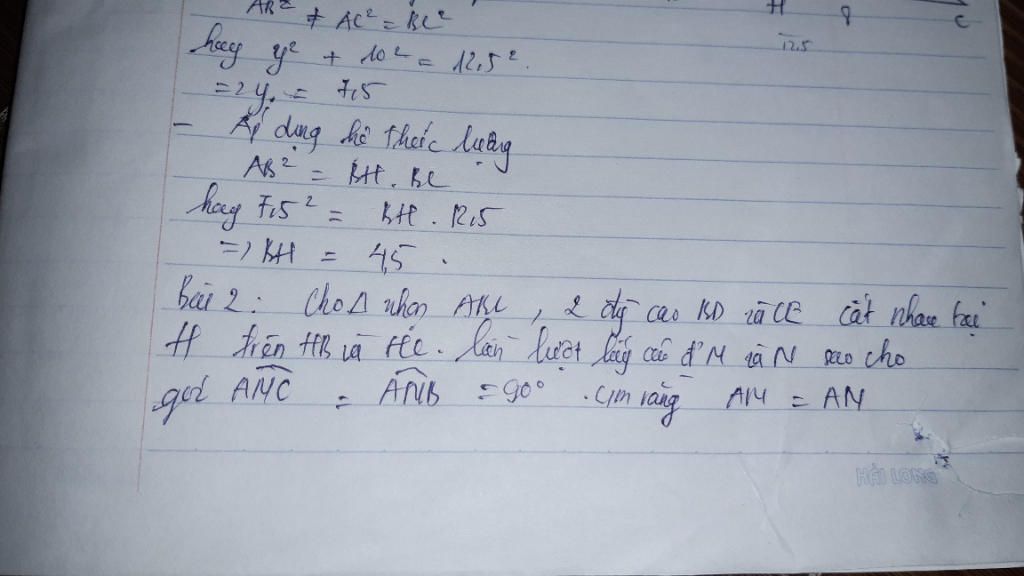 AB² + AC² = BC²
H ? C
12,5
hay y² + 10² = 12,5².
=> y = 7,5
- Áp dụng hệ thức lượng
AB² = BH . BC
hay 7,5² = BH . 12,5
=> BH = 4,5 .
Bài 2 : Cho Δ nhọn ABC , 2 đg cao BD và CE cắt nhau tại
H trên HB và HC . lần lượt lấy các đ' M và N sao cho
góc AMC = ANB = 90° . Cm rằng AM = AN
HẢI LONG